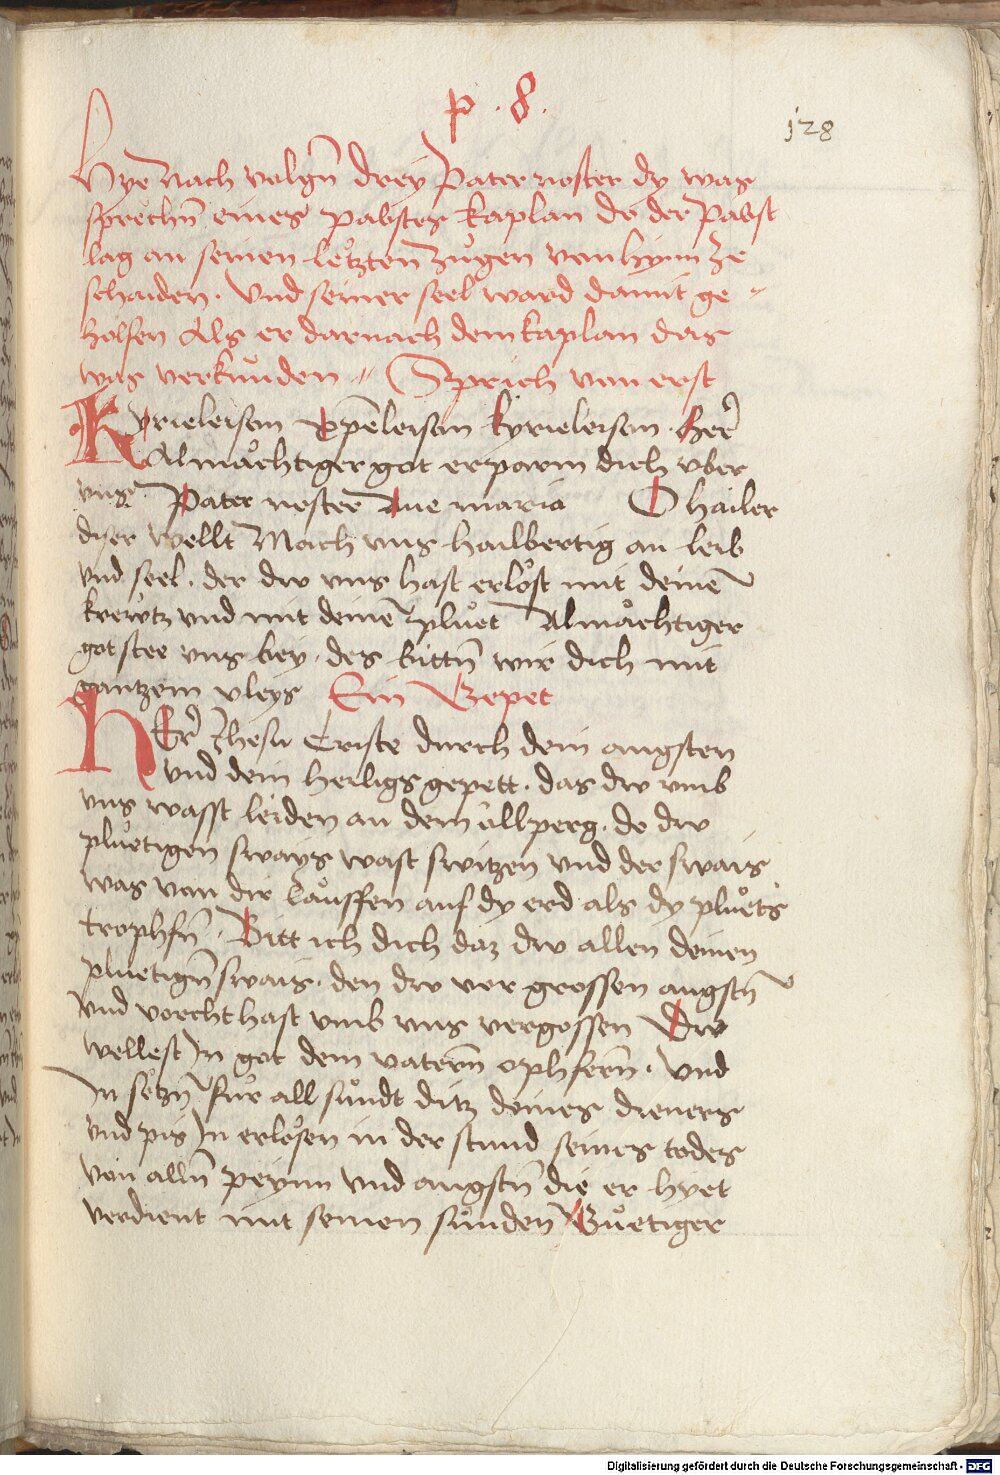 p . 8 .
128
Hye nach volgn̄ drey Pater noster dy was
sprechn̄ eines pabstes kaplan do der Pabst
lag an seinen letzten zugen von hynn ze
schaiden . Vnd seiner seel ward damit ge =
holfen Als er darnach dem kaplan das
was verkunden = Sprich von erst
Kyrieleison Xp̄eleison kyrieleison . Her̄
Almächtiger got erparm dich vber
vns . Pater noster Aue maria O hailer
diser wellt Mach vns hailbertig an leib
vnd seel . der dw vns hast erlöst mit deinem
krewtz vnd mit deinem pluet Almächtiger
got stee vns bey . des bittn̄ wir dich mit
gantzem vleys Ein Gepet
HEr̄ Jhesu Criste durch dein angsten
vnd dein heiligs gepett . das dw vmb
vns wasst leiden an dem ällperg . do dw
pluetigen sways wast switzen vnd der swais
was von dir lauffen auf dy erd als dy pluets
trophfn̄ . Bitt ich dich daz dw allen deinen
pluetign̄ swais . den dw vor grossen angstn̄
vnd vorcht hast vmb vns vergossen Dw
wellest Jn got dem vatern̄ ophfern̄ . Vnd
Jn setzn̄ für all sündt ditz deines dieners
vnd pis Jn erlösen in der stund seines todes
von alln̄ peynn vnd angstn̄ die er hyet
verdient mit seinen sünden Güetiger
Digitalisierung gefördert durch die Deutsche Forschungsgemeinschaft - DFG